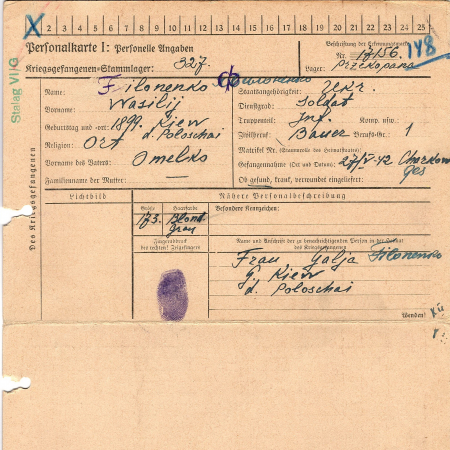 X 2 3 4 5 6 7 8 9 10 11 12 13 14 15 16 17 18 19 20 21 22 23 24 25
Personalkarte I: Personelle Angaben
Beschriftung der Erkennungsmarke
Nr. 17156 148
Kriegsgefangenen-Stammlager: 327
Lager: Przekopana
Stalag VII G
Des Kriegsgefangenen
Name: Filonenko Филоненко
Vorname: Wasilij
Geburtstag und -ort: 1899. Kiew
d. Poloschai
Religion: Ort
Vorname des Vaters: Omelko
Familienname der Mutter: —
Staatsangehörigkeit: Ukr.
Dienstgrad: Soldat
Truppenteil: Inf. Komp. usw.:
Zivilberuf: Bauer Berufs-Gr.: 1
Matrikel Nr. (Stammrolle des Heimatstaates):
Gefangennahme (Ort und Datum): 27/V-42 Charkow
Ob gesund, krank, verwundet eingeliefert: ges
Lichtbild
Nähere Personalbeschreibung
Grösse Haarfarbe Besondere Kennzeichen:
173. Blond
grau
Fingerabdruck
des rechten! Zeigefingers
Name und Anschrift der zu benachrichtigenden Person in der Heimat
des Kriegsgefangenen
Frau Galja Filonenko
G. Kiew
d. Poloschai
Wenden!